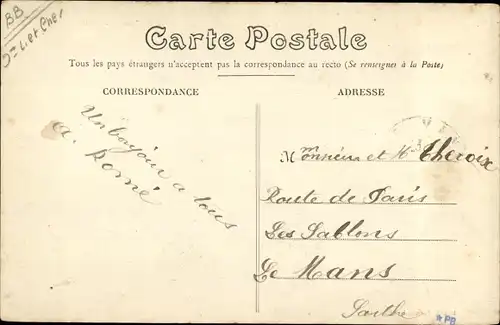 BB
Carte Postale
Tous les pays étrangers n'acceptent pas la correspondance au recto (Se renseigner à la Poste)
CORRESPONDANCE
Un bonjour a tous
a. Romé
ADRESSE
Monsieur et Mme Theroix
Route de Paris
Les Sablons
Le Mans
Sarthe
*PB